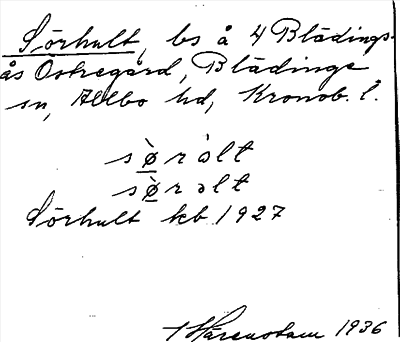 Sörhult, bs å 4 Blädings-
ås Östregård, Blädinge
sn, Allbo hd, Kronob. l.
sø̀rȧlt
sø̀rəlt
Sörhult kb 1927
1936